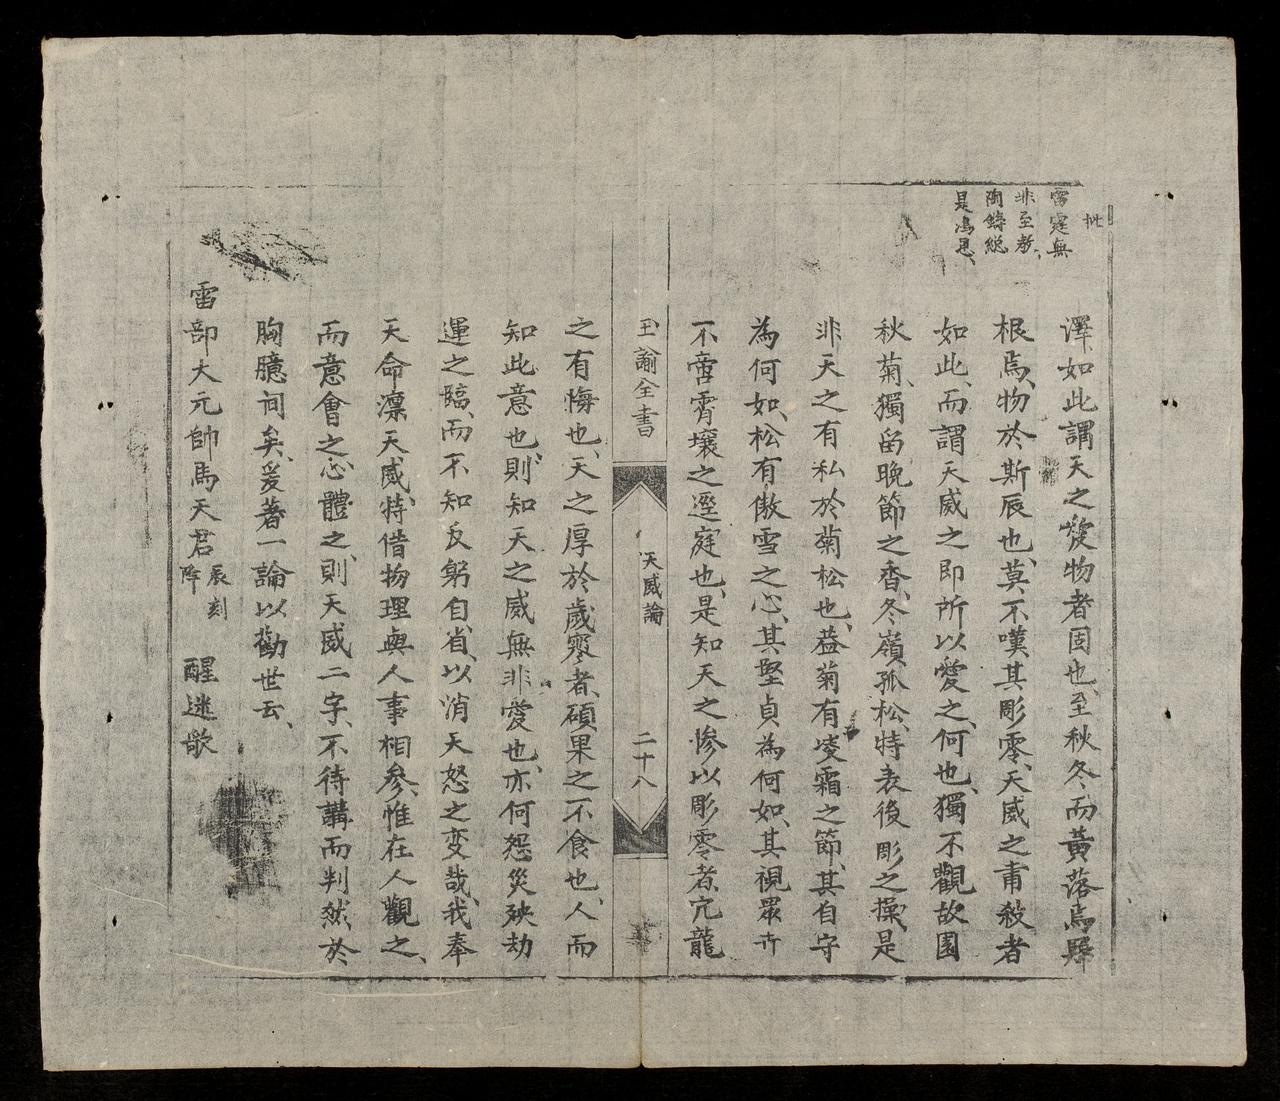 批
雷霆無
非至教、
陶鑄總
是鴻恩、
澤、如此謂天之愛物者固也、至秋冬而黃落焉、歸
根焉、物於斯辰也、莫不嘆其彫零、天威之肅殺者
如此、而謂天威之即所以愛之、何也、獨不觀故園
秋菊、獨留晚節之香、冬嶺孤松、特表後彫之操、是
非天之有私於菊松也、葢菊有凌霜之節、其自守
為何如、松有傲雪之心、其堅貞為何如、其視眾卉
不啻霄壤之逕庭也、是知天之慘以彫零者、亢龍
玉諭全書
天威論
二十八
之有悔也、天之厚於歲寒者、碩果之不食也、人而
知此意也、則知天之威無非愛也、亦何怨災殃劫
運之臨、而不知反躬自省、以消天怒之变哉、我奉
天命凛天威、特借物理與人事相參、惟在人觀之、
而意會之、心體之、則天威二字、不待講而判然於
胸臆间矣、爰著一論以勸世云、
雷部大元帥馬天君 辰刻降 醒迷歌